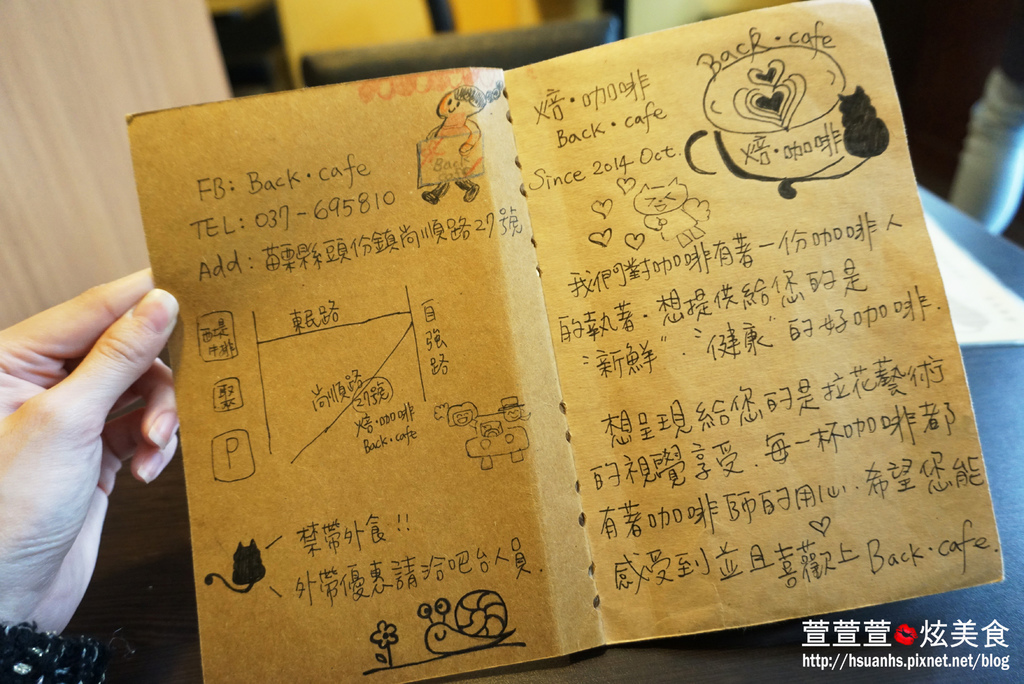 Back
FB: Back·cafe
TEL: 037-695810
Add: 苗栗縣頭份鎮尚順路27號
東民路
自強路
牛排
P
尚順路
27號
焙·咖啡
Back·cafe
禁帶外食!!
外帶優惠請洽吧台人員.
焙·咖啡
Back·cafe
Since 2014 Oct.
Back·cafe
焙·咖啡
我們對咖啡有著一份咖啡人
的執著.想提供給您的是
"新鮮"."健康"的好咖啡.
想呈現給您的是拉花藝術
的視覺享受.每一杯咖啡都
有著咖啡師的用心.希望您能
感受到並且喜歡上Back·cafe.
萱萱萱炫美食
http://hsuanhs.pixnet.net/blog